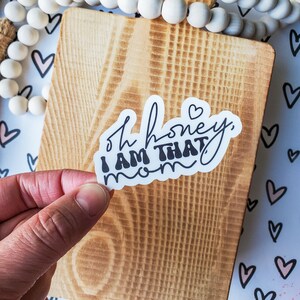 oh honey,
I AM THAT
mom